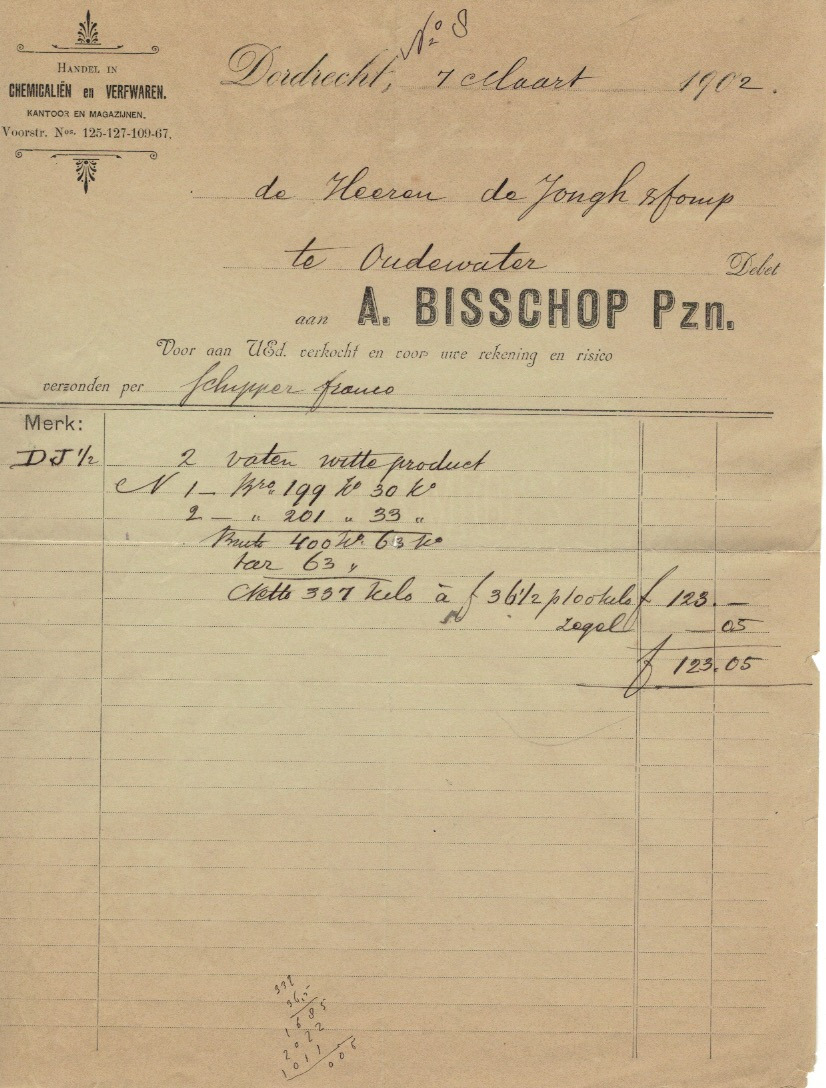 No 8
HANDEL IN
CHEMICALIËN en VERFWAREN.
KANTOOR EN MAGAZIJNEN.
Voorstr. Nos. 125-127-109-67.
Dordrecht, 7 Maart 1902.
de Heeren de Jongh & Comp
te Oudewater Debet
aan A. BISSCHOP Pzn.
Voor aan UEd. verkocht en voor uwe rekening en risico
verzonden per Schipper franco
Merk:
DJ 1/2 2 vaten witte product
N 1 - Bro 199 Ko 30 Ko
2 - " 201 " 33 "
Bruto 400 Ko 63 Ko
tar 63 "
Netto 337 Kilo à f 36 1/2 p 100 kilo f 123. —
Zegel — 05
f 123.05
337
36,5
1685
2022
1011
005